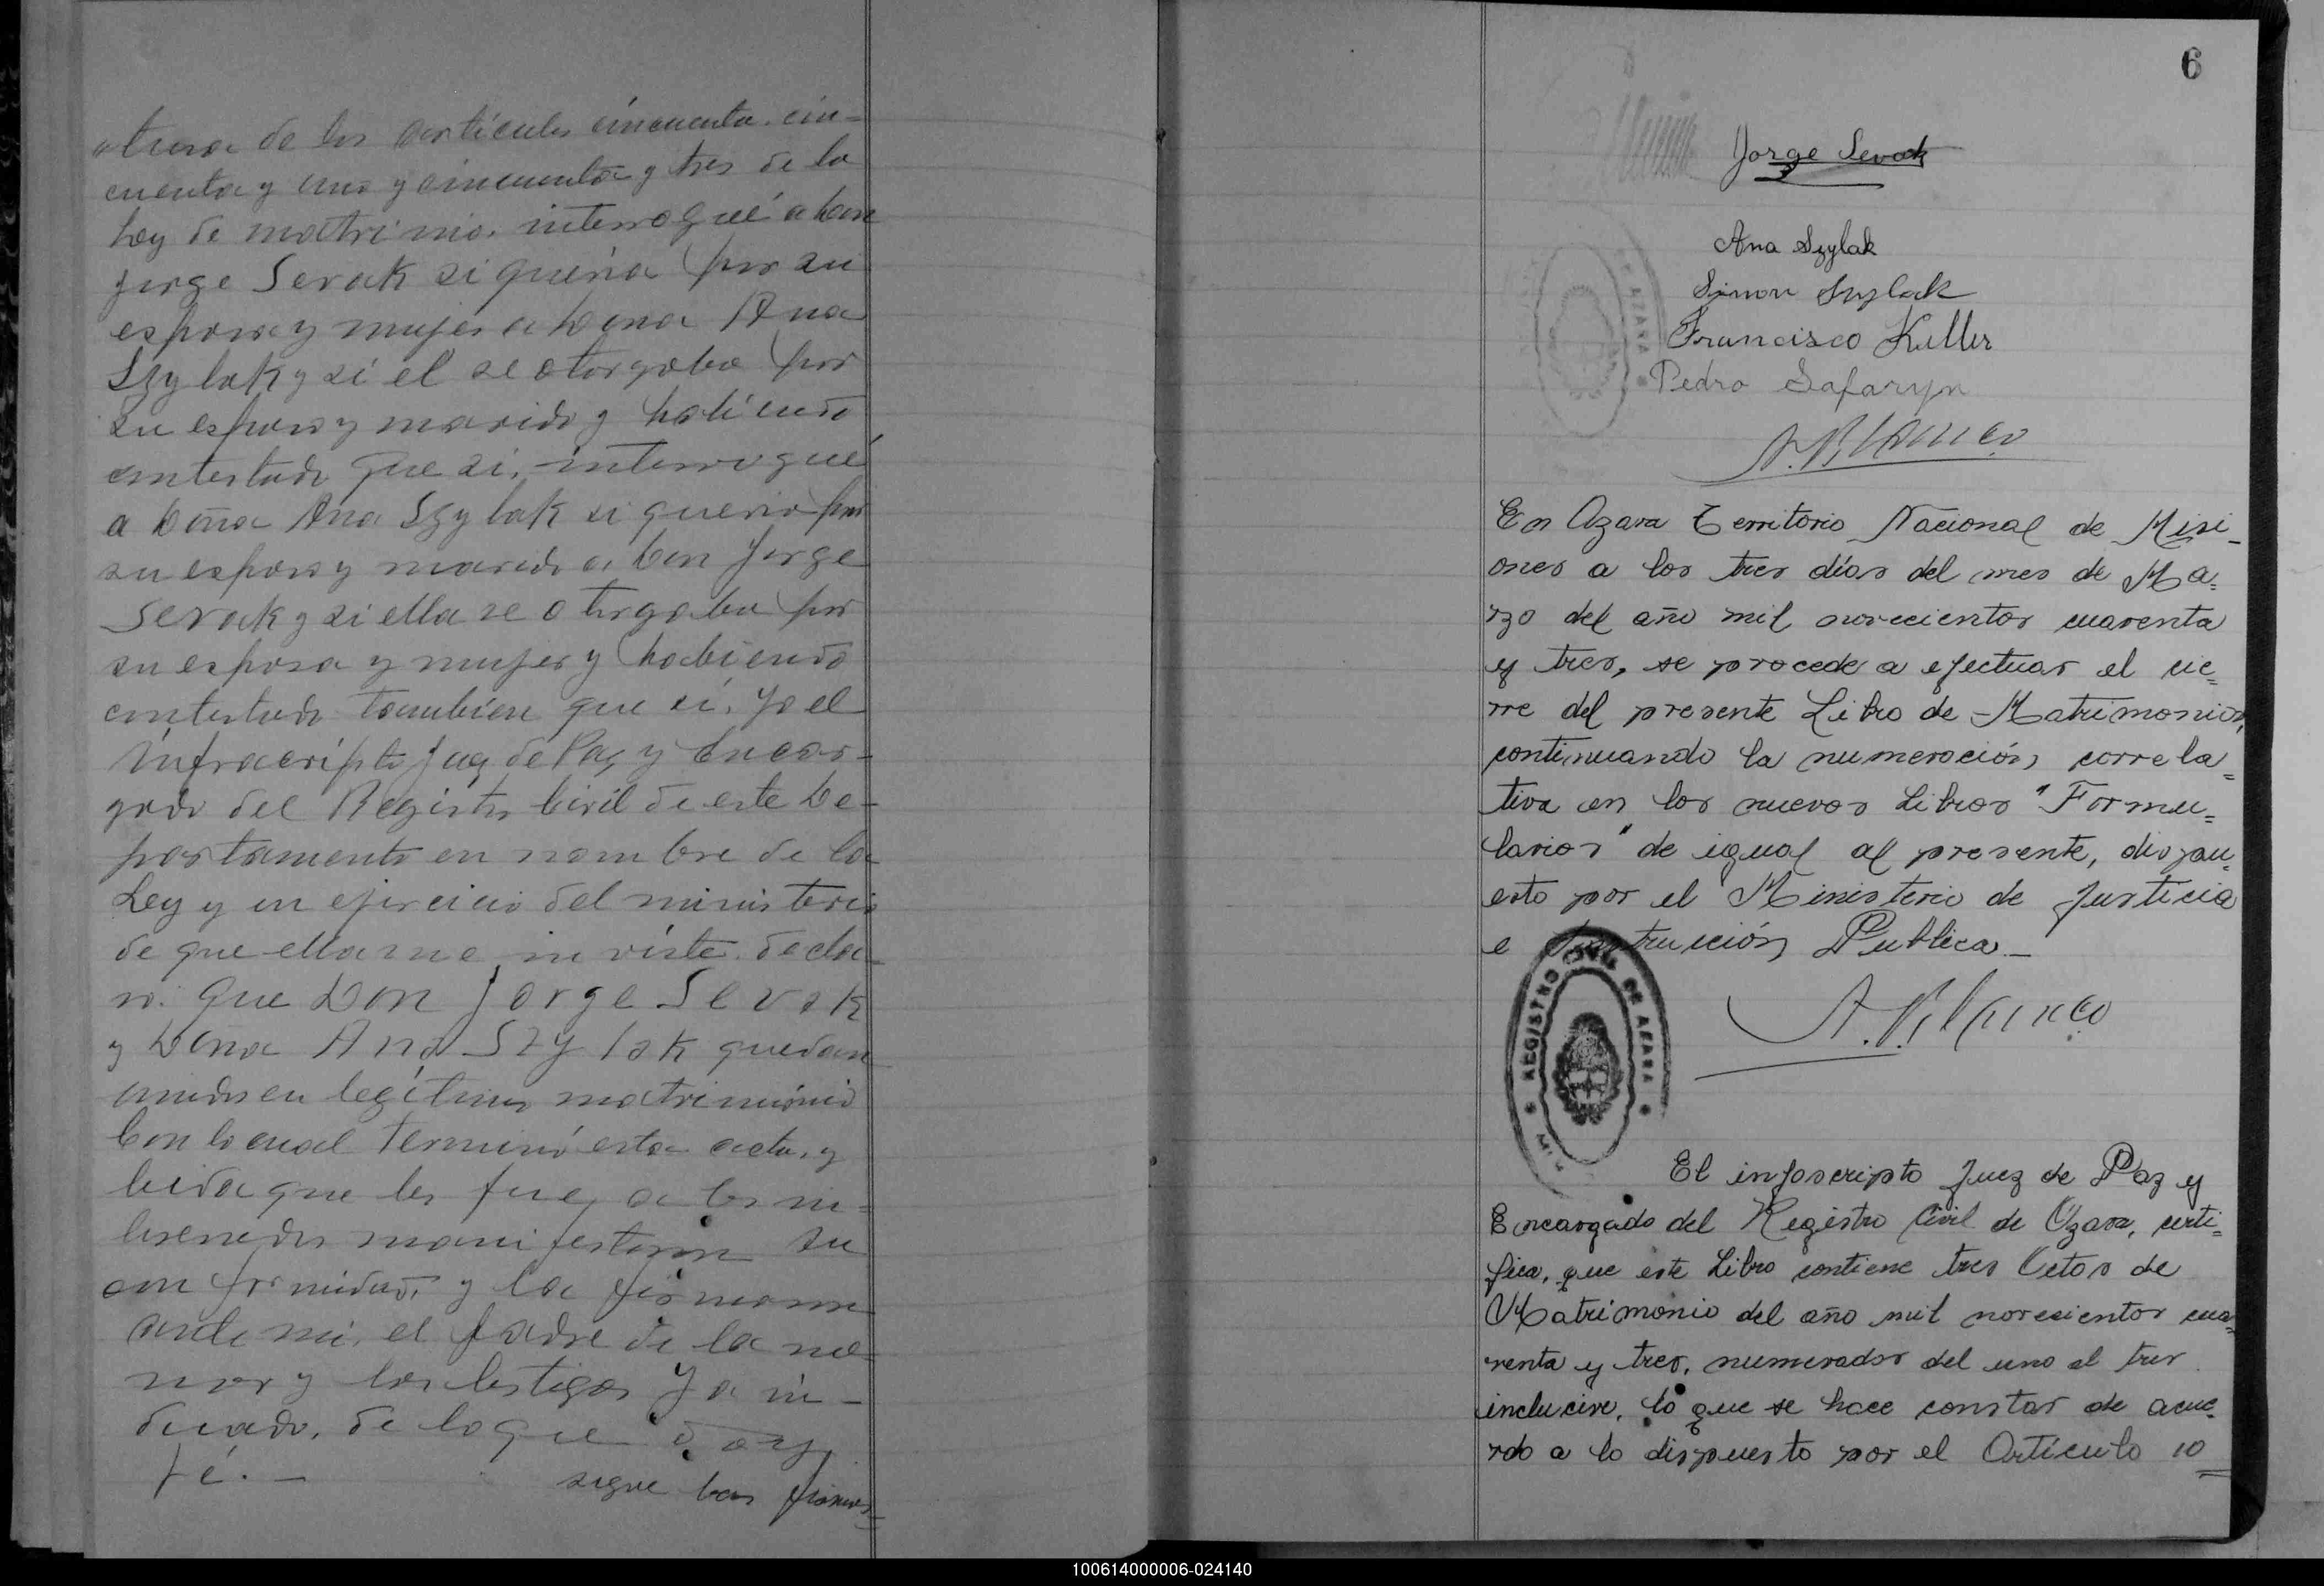 ctura de los artículos cincuenta. cin-
cuenta y uno y cincuenta y tres de la
Ley de matrimio. interrogué a Don
Jorge Sevak si quería por su
esposa y mujer a Dona Ana
Szylak y si el se otorgaba por
su esposo y marido y habiendo
contestado que si, interrogué
a Doña Ana Szylak si queria por
su esposo y marido a Don Jorge
Sevak y si ella se otorgaba por
su esposa y mujer y habiendo
contestado tambien que si, yo el
infracripto Juez de Paz y Encar-
gado del Registro Civil de este De-
partamento en nombre de la
Ley y en ejercicio del ministerio
de que ella me inviste. decla-
ro: que Don Jorge Sevak
y Dona Ana Szylak quedan
unidos en legítimo matrimónio
Con lo cual terminó esta acta, y
leida que les fue, a los in=
teresados manifestaron su
conformidad, y la firmaron
ante mi, el padre de la me=
nor y los testigos ya in-
dicado, de lo que doy
fé.-
sigue las firmas=
6
Jorge Sevak
Ana Szylak
Simon Szylak
Francisco Keller
Pedro Safaryn
A. Blanco
En Azara Territorio Nacional de Misi-
ones a los tres días del mes de Ma=
rzo del año mil novecientos cuarenta
y tres, se procede a efectuar el cie=
rre del presente Libro de Matrimonios,
continuando la numeración correla=
tiva en los nuevos Libros "Formu=
larios" de igual al presente, dispu=
esto por el Ministerio de Justicia
e Instrucción Publica.-
A. Blanco
REGISTRO CIVIL DE AZARA
El infrascripto Juez de Paz y
Encargado del Registro Civil de Azara, certi=
fica, que este Libro contiene tres Actas de
Matrimonio del año mil novecientos cua=
renta y tres, numerados del uno al tres
inclucive, lo que se hace constar de acue=
rdo a lo dispuesto por el Artículo 10
100614000006-024140